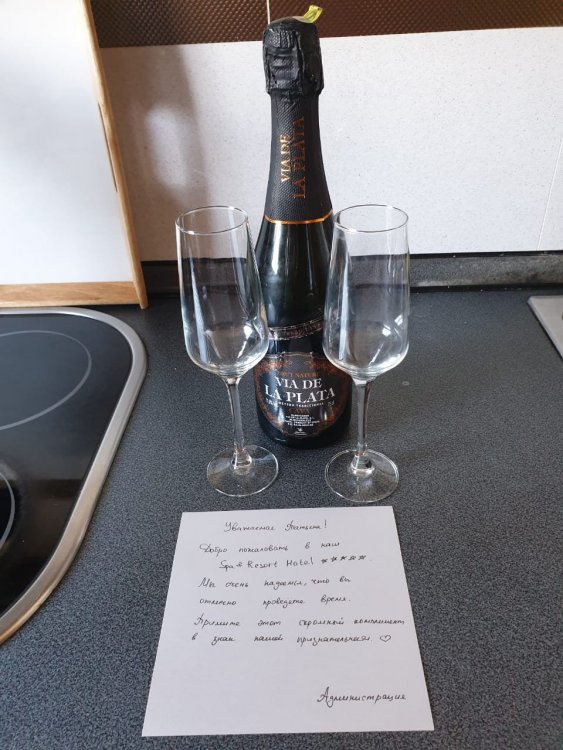 VIA DE
LA PLATA
BRUT NATURE
VIA DE
LA PLATA
MÉTODO TRADICIONAL
CAVA
Уважаемая Татьяна!
Добро пожаловать в наш
Spa & Resort Hotel *****.
Мы очень надеемся, что вы
отлично проведете время.
Примите этот скромный комплимент
в знак нашей признательности. ♡
Администрация